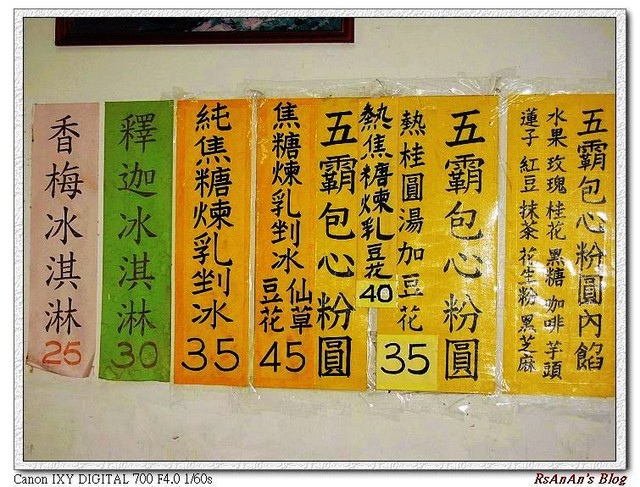 五霸包心粉圓內餡
水果 玫瑰 桂花 黑糖 咖啡 芋頭
蓮子 紅豆 抹茶 花生粉 黑芝麻
五霸包心粉圓
熱桂圓湯加豆花
35
熱焦糖煉乳豆花
40
五霸包心粉圓
焦糖煉乳剉冰
仙草
豆花
45
純焦糖煉乳剉冰
35
釋迦冰淇淋
30
香梅冰淇淋
25
Canon IXY DIGITAL 700 F4.0 1/60s
RsAnAn's Blog